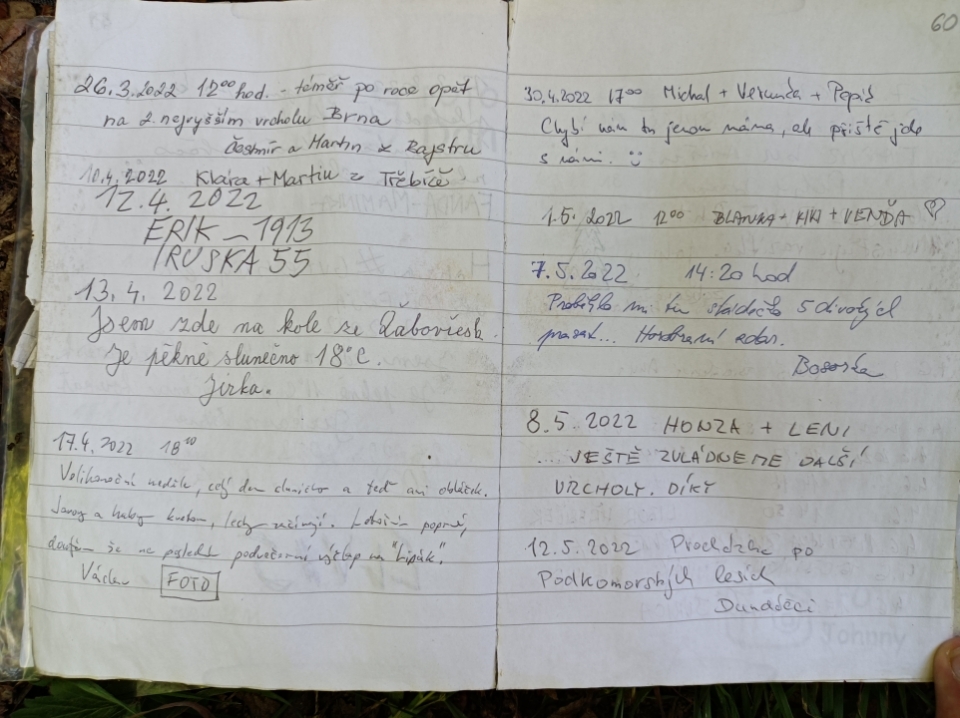 26.3.2022 12⁰⁰ hod. - téměř po roce opět
na 2. nejvyšším vrcholu Brna
Čestmír a Martin z Rajstru
10.4.2022 Klára + Martin z Třebíče
12.4.2022
ERIK - 1913
IRUSKA 55
13.4.2022
Jsem zde na kole ze Žabovřesk.
Je pěkně slunečno 18°C.
Jirka.
17.4.2022 18⁰⁰
Velikonoční neděle, celý den a teď ani obláček.
a kvetou, Letošní poprvé,
doufám že ne poslední podvečerní výstup na "Lipák".
Václav FOTO
60
30.4.2022 17⁰⁰ Michal + Verunka + Pepíč
Chybí nám tu jenom máma, ale příště jde
s námi. :)
1.5.2022 12⁰⁰ BLANKA + KIKI + VENĎA ♡
7.5.2022 14:20 hod
Proběhlo mi tu stádečko 5 divokých
prasat...
Bosorka
8.5.2022 HONZA + LENI
... JEŠTĚ ZVLÁDNEME DALŠÍ
VRCHOLY. DÍKY
12.5.2022 Procházka po
Podkomorských lesích
Dundáčci
Johnny